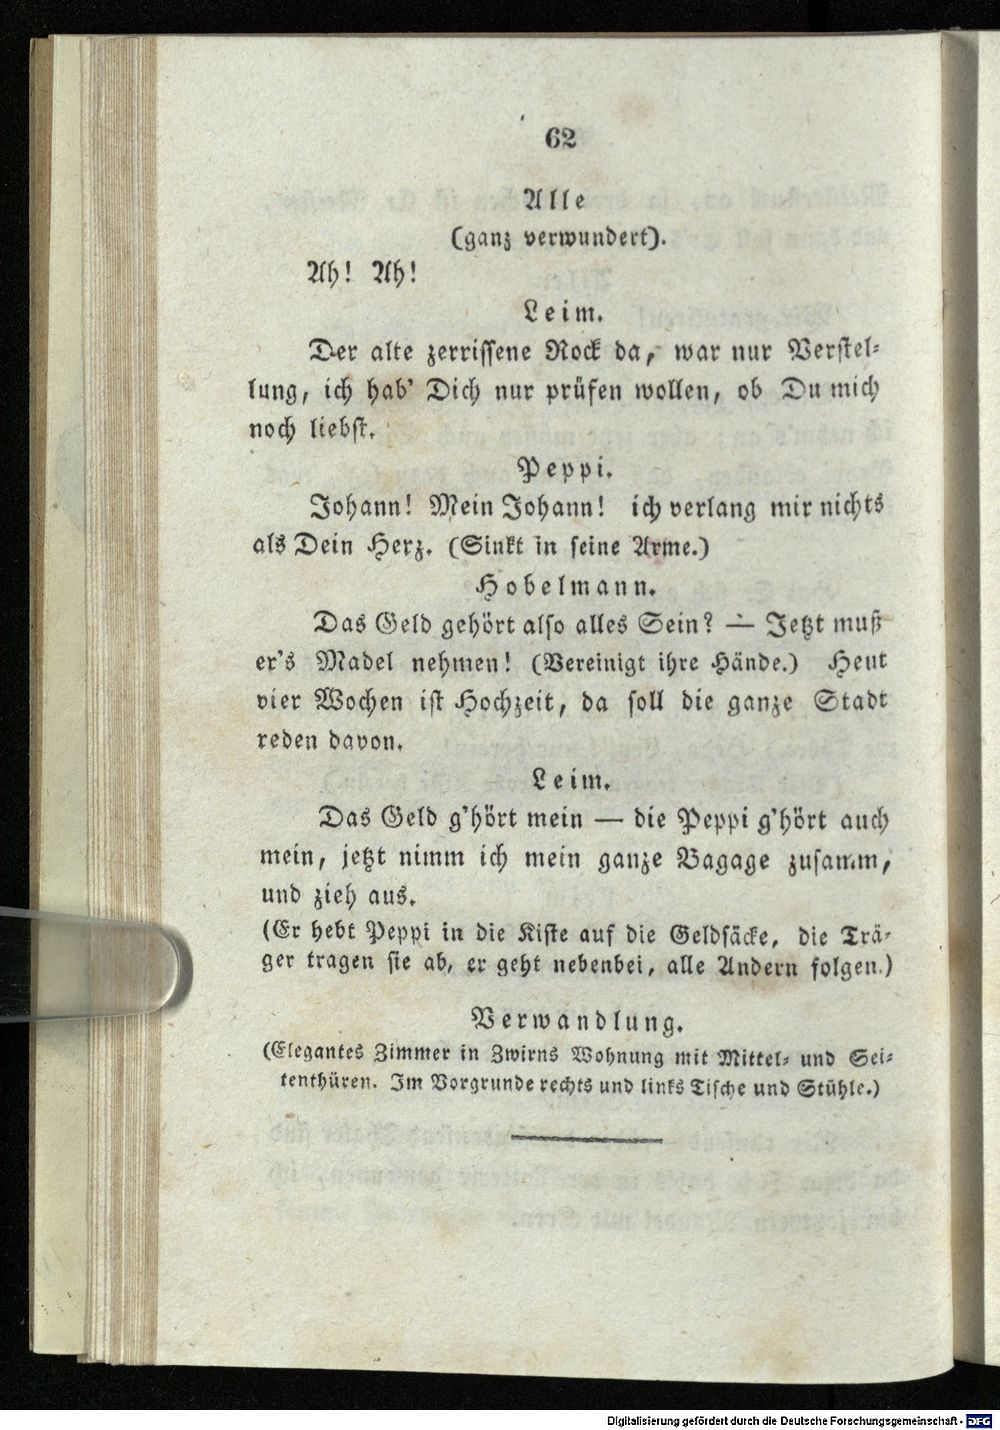 62
Alle
(ganz verwundert).
Ah! Ah!
Leim.
Der alte zerrissene Rock da, war nur Verstel-
lung, ich hab' Dich nur prüfen wollen, ob Du mich
noch liebst.
Peppi.
Johann! Mein Johann! ich verlang mir nichts
als Dein Herz. (Sinkt in seine Arme.)
Hobelmann.
Das Geld gehört also alles Sein? — Jetzt muß
er's Madel nehmen! (Vereinigt ihre Hände.) Heut
vier Wochen ist Hochzeit, da soll die ganze Stadt
reden davon.
Leim.
Das Geld g'hört mein — die Peppi g'hört auch
mein, jetzt nimm ich mein ganze Bagage zusamm,
und zieh aus.
(Er hebt Peppi in die Kiste auf die Geldsäcke, die Trä-
ger tragen sie ab, er geht nebenbei, alle Andern folgen.)
Verwandlung.
(Elegantes Zimmer in Zwirns Wohnung mit Mittel- und Sei-
tenthüren. Im Vorgrunde rechts und links Tische und Stühle.)
Digitalisierung gefördert durch die Deutsche Forschungsgemeinschaft - DFG